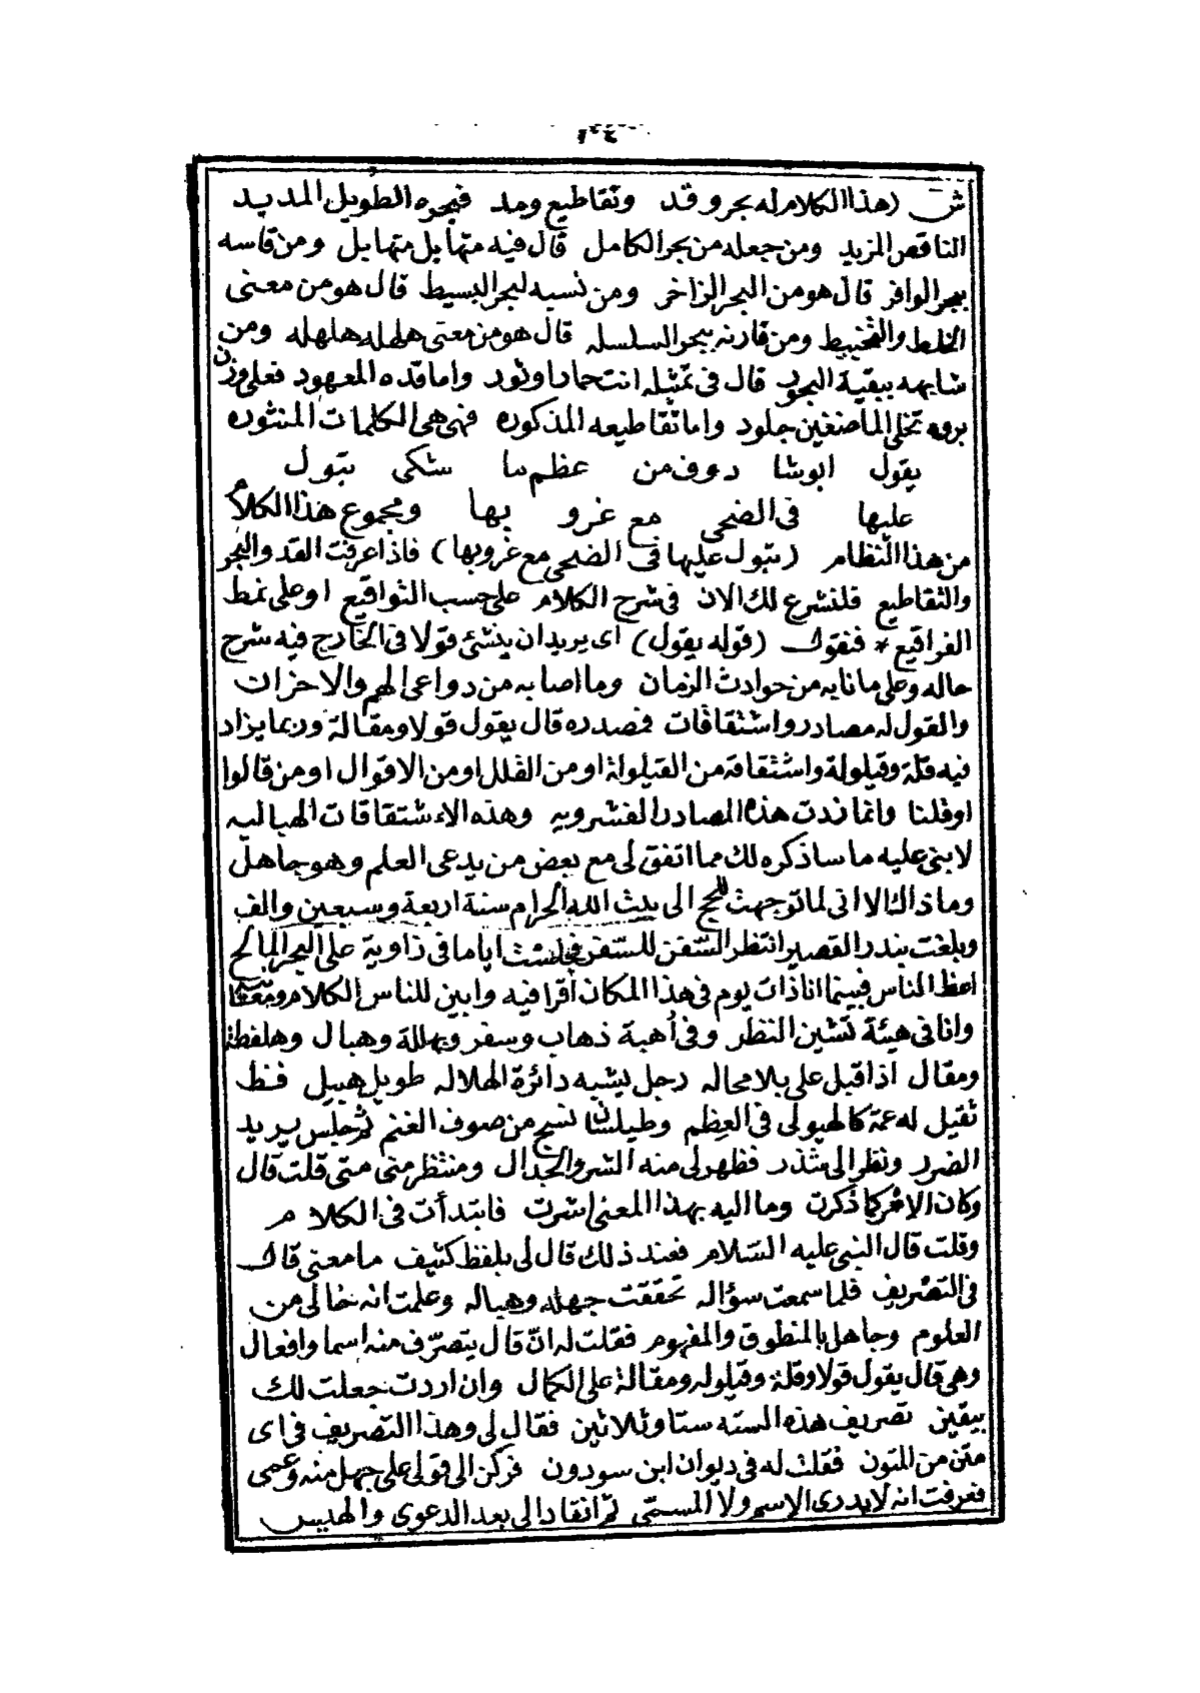 ١٠٤
ش (هذا الكلام له بحر وقد وتقاطيع ومد فبحره الطويل المديد
الناقص المزيد ومن جعله من بحر الكامل قال فيه متهايل متهايل ومن قاسه
ببحر الوافر قال هو من البحر الزاخر ومن نسبه لبحر البسيط قال هو من معنى
الخلط والتخبيط ومن قارنه ببحر السلسله قال هو من معنى هلهله هلهله ومن
شابهه ببقية البحور قال في تمثيله انت حمار او تور واما قده المعهود فعلى وزن
بروه تخلى الماضغين جلود واما تقاطيعه المذكوره فهى هى الكلمات المنثوره
يقول ابوشا دوف من عظم ما شكى تبول
عليها فى الضحى مع غرو بها ومجموع هذا الكلام
من هذا النظام (تبول عليها فى الضحى مع غروبها) فاذا عرفت القد والبحر
والتقاطيع فلنشرع لك الان فى شرح الكلام على حسب التواقيع او على نمط
الفراقيع * فنقول (قوله يقول) اى يريد ان ينشئ قولا فى الخارج فيه شرح
حاله وعلى ما نابه من حوادث الزمان وما اصابه من دواعى الهم والاحزان
والقول له مصادر واشتقاقات فمصدره قال يقول قولا ومقالة وربما يزاد
فيه قلة وقيلولة واشتقاقه من القيلولة او من القلل او من الاقوال او من قالوا
او قلنا وانما زدت هذه المصادر الفشرويه وهذه الاشتقاقات الهباليه
لابنى عليه ما ساذكره لك مما اتفق لى مع بعض من يدعى العلم وهو جاهل
وما ذاك الا انى لما توجهت للحج الى بيت الله الحرام سنة اربعة وسبعين والف
وبلغت بندر القصير انتظر السفن للسفر فجلست اياما فى زاوية على البحر المالح
اعظ الناس فبينما انا ذات يوم فى هذا المكان اقرا فيه وابين للناس الكلام ومعناه
وانا فى هيئة تشين النظر وفى اهبة ذهاب وسفر وبهللة وهبال وهلفطة
ومقال اذ اقبل على بلا محاله رجل يشبه دائرة الهلاله طويل هبيل فظ
ثقيل له عمة كالهيولى فى العظم وطيلسان نسج من صوف الغنم ثم جلس يريد
الضرر ونظر الى شذر فظهر لى منه الشر والجدال ومنتظر منى متى قلت قال
وكان الامر كما ذكرت وما اليه بهذا المعنى اشرت فابتدأت فى الكلام
وقلت قال النبى عليه السلام فعند ذلك قال لى بلفظ كثيف ما معنى قال
فى التصريف فلما سمعت سؤاله تحققت جهله وهباله وعلمت انه خالى من
العلوم وجاهل بالمنطوق والمفهوم فقلت له ان قال يتصرف منه اسما وافعال
وهى قال يقول قولا وقلة وقيلوله ومقالة على الكمال وان اردت جعلت لك
بيقين تصريف هذه السته ستا وثلاثين فقال لى وهذا التصريف فى اى
متن من المتون فقلت له فى ديوان ابن سودون فركن الى قولى على جهل منه وعمى
فعرفت انه لا يدرى الاسم ولا المسمى ثم انقاد الى بعد الدعوى والهبيس